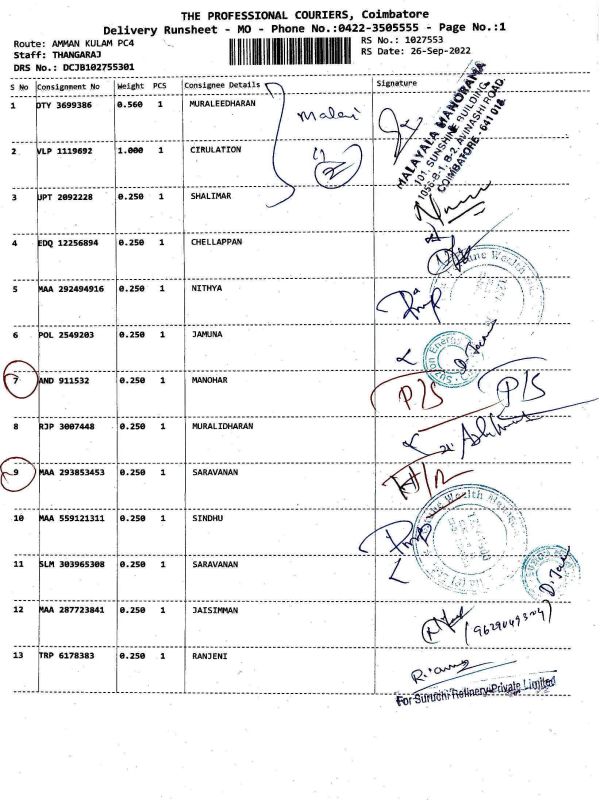 THE PROFESSIONAL COURIERS, Coimbatore
Delivery Runsheet - MO - Phone No.:0422-3505555 - Page No.:1
Route: AMMAN KULAM PC4
Staff: THANGARAJ
DRS No.: DCJB102755301
RS No.: 1027553
RS Date: 26-Sep-2022
S No Consignment No Weight PCS Consignee Details Signature
1 DTY 3699386 0.560 1 MURALEEDHARAN
MALAYALA MANORAMA
101, SUNSHINE BUILDING,
1056-B-1, B-2, AVINASHI ROAD,
COIMBATORE - 641 018.
2 VLP 1119692 1.000 1 CIRULATION
3 UPT 2092228 0.250 1 SHALIMAR
4 EDQ 12256894 0.250 1 CHELLAPPAN
5 MAA 292494916 0.250 1 NITHYA
6 POL 2549203 0.250 1 JAMUNA
7 AND 911532 0.250 1 MANOHAR
P/S P/S
8 RJP 3007448 0.250 1 MURALIDHARAN
9 MAA 293853453 0.250 1 SARAVANAN
10 MAA 559121311 0.250 1 SINDHU
11 SLM 303965308 0.250 1 SARAVANAN
12 MAA 287723841 0.250 1 JAISIMMAN
13 TRP 6178383 0.250 1 RANJENI
For Suruchi Refinery Private Limited